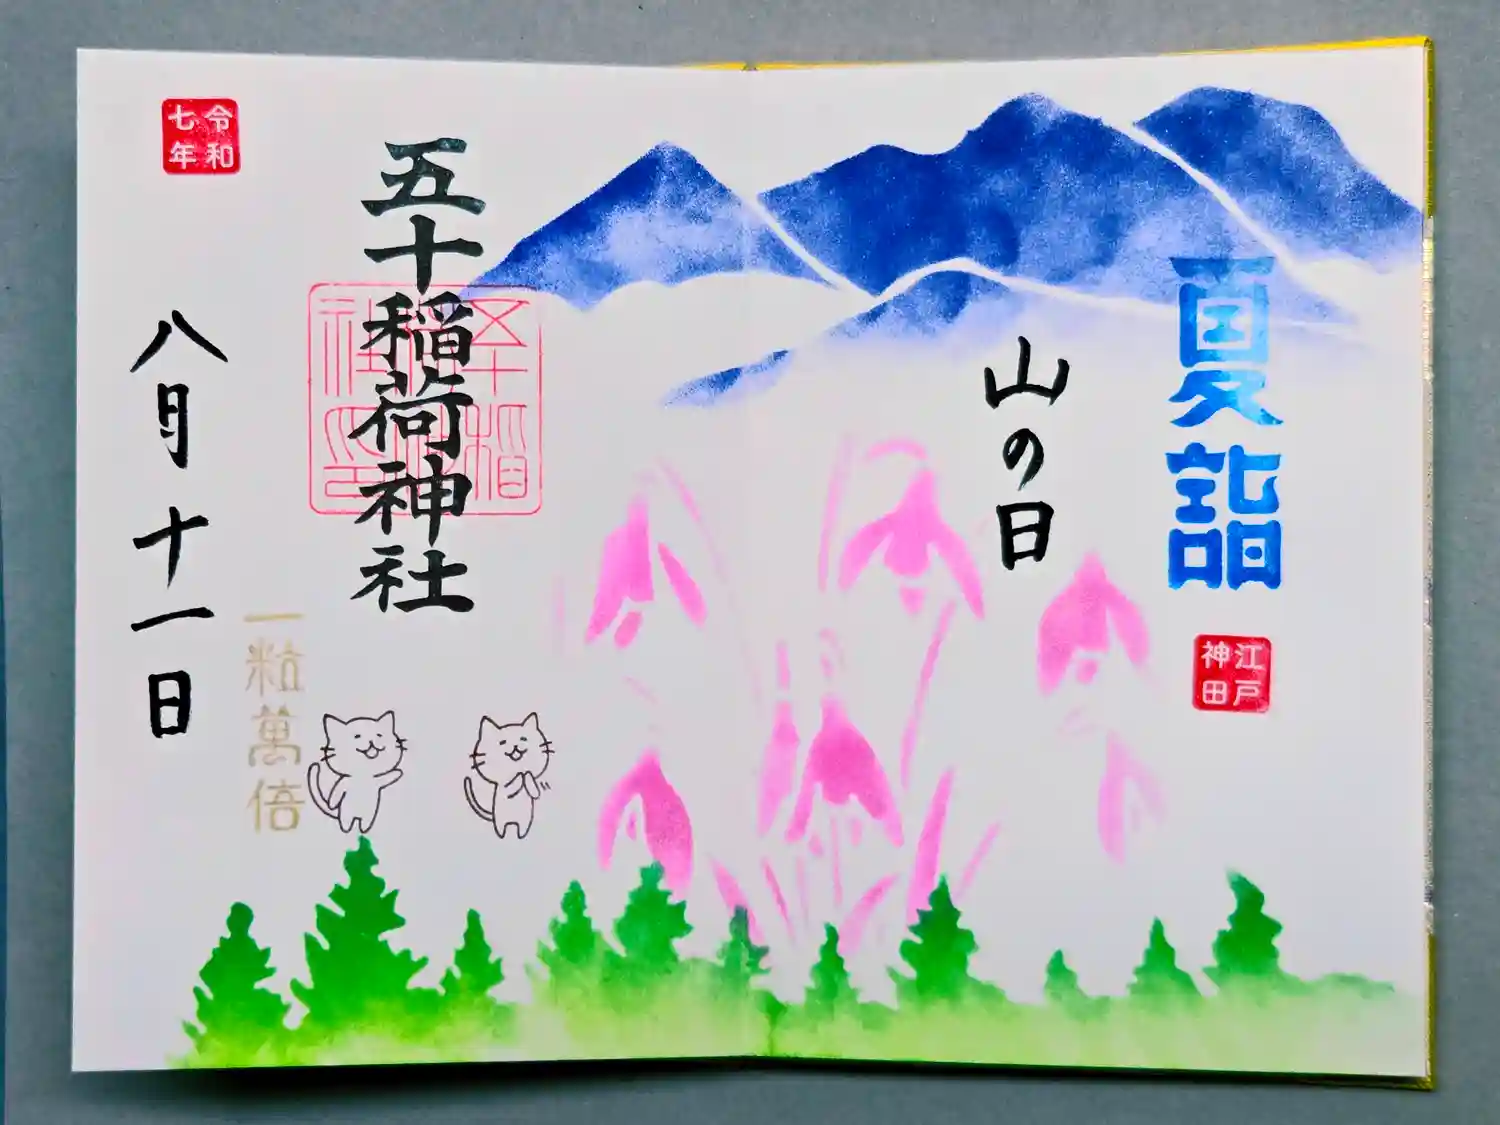 夏詣
江戸神田
山の日
五十稲荷神社
五十稲荷神社印
一粒萬倍
令和七年
八月十一日